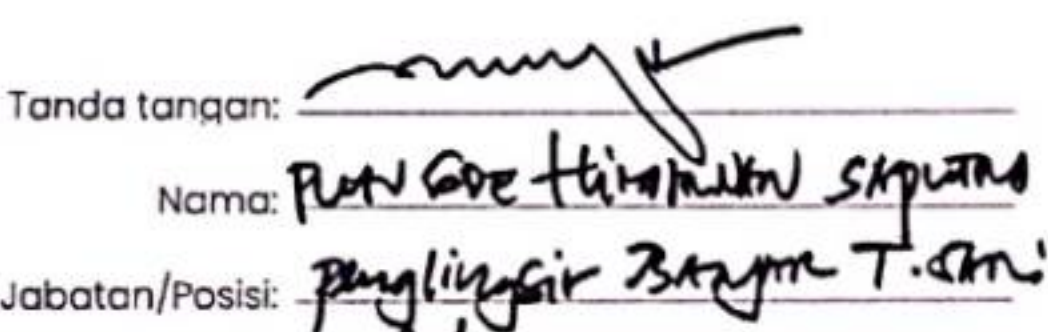 Tanda tangan:
Nama: Gde SAPUTRA
Jabatan/Posisi: Penglingsir Banjar T. Sari